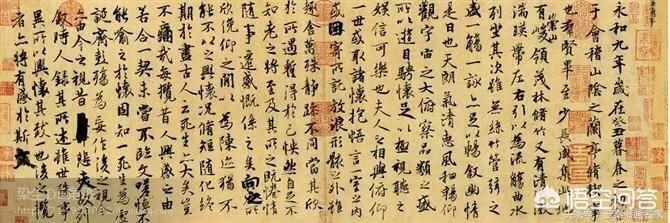 永和九年歲在癸丑暮春之初會
于會稽山陰之蘭亭脩稧事
也羣賢畢至少長咸集此地
有崇山峻領茂林脩竹又有清流激
湍暎帶左右引以為流觴曲水
列坐其次雖無絲竹管弦之
盛一觴一詠亦足以暢敘幽情
是日也天朗氣清惠風和暢仰
觀宇宙之大俯察品類之盛
所以遊目騁懷足以極視聽之
娛信可樂也夫人之相與俯仰
一世或取諸懷抱悟言一室之內
或因寄所託放浪形骸之外雖
趣舍萬殊靜躁不同當其欣
於所遇蹔得於己怏然自足不
知老之將至及其所之既惓情
隨事遷感慨係之矣向之所
欣俛仰之閒以為陳跡猶不
能不以之興懷況脩短隨化終
期於盡古人云死生亦大矣豈
不痛哉每攬昔人興感之由
若合一契未嘗不臨文嗟悼不
能喻之於懷固知一死生為虛
誕齊彭殤為妄作後之視今
亦由今之視昔悲夫故列
敘時人錄其所述雖世殊事
異所以興懷其致一也後之攬
者亦將有感於斯文
悟空问答